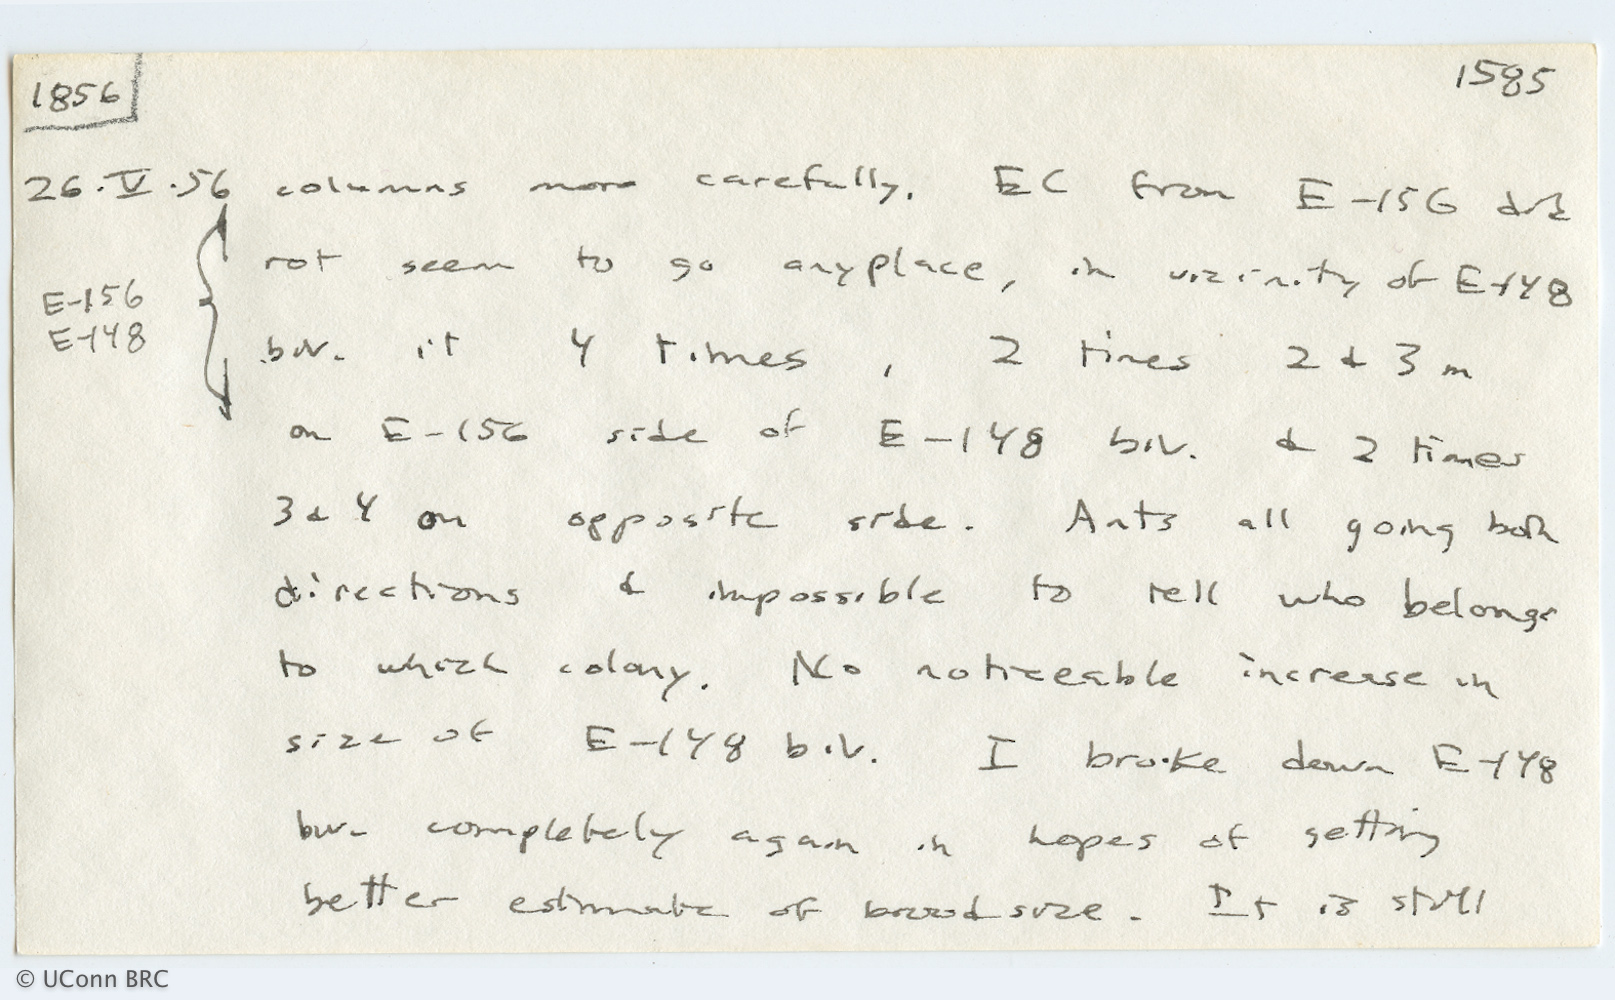 1856
1585
26.V.56 columns more carefully. EC from E-156 did
not seem to go anyplace, in vicinity of E-148
E-156
E-148
biv. it 4 times, 2 times 2 & 3 m
on E-156 side of E-148 biv. & 2 times
3 & 4 on opposite side. Ants all going both
directions & impossible to tell who belongs
to which colony. No noticeable increase in
size of E-148 biv. I broke down E-148
biv. completely again in hopes of getting
better estimate of brood size. It is still
© UConn BRC